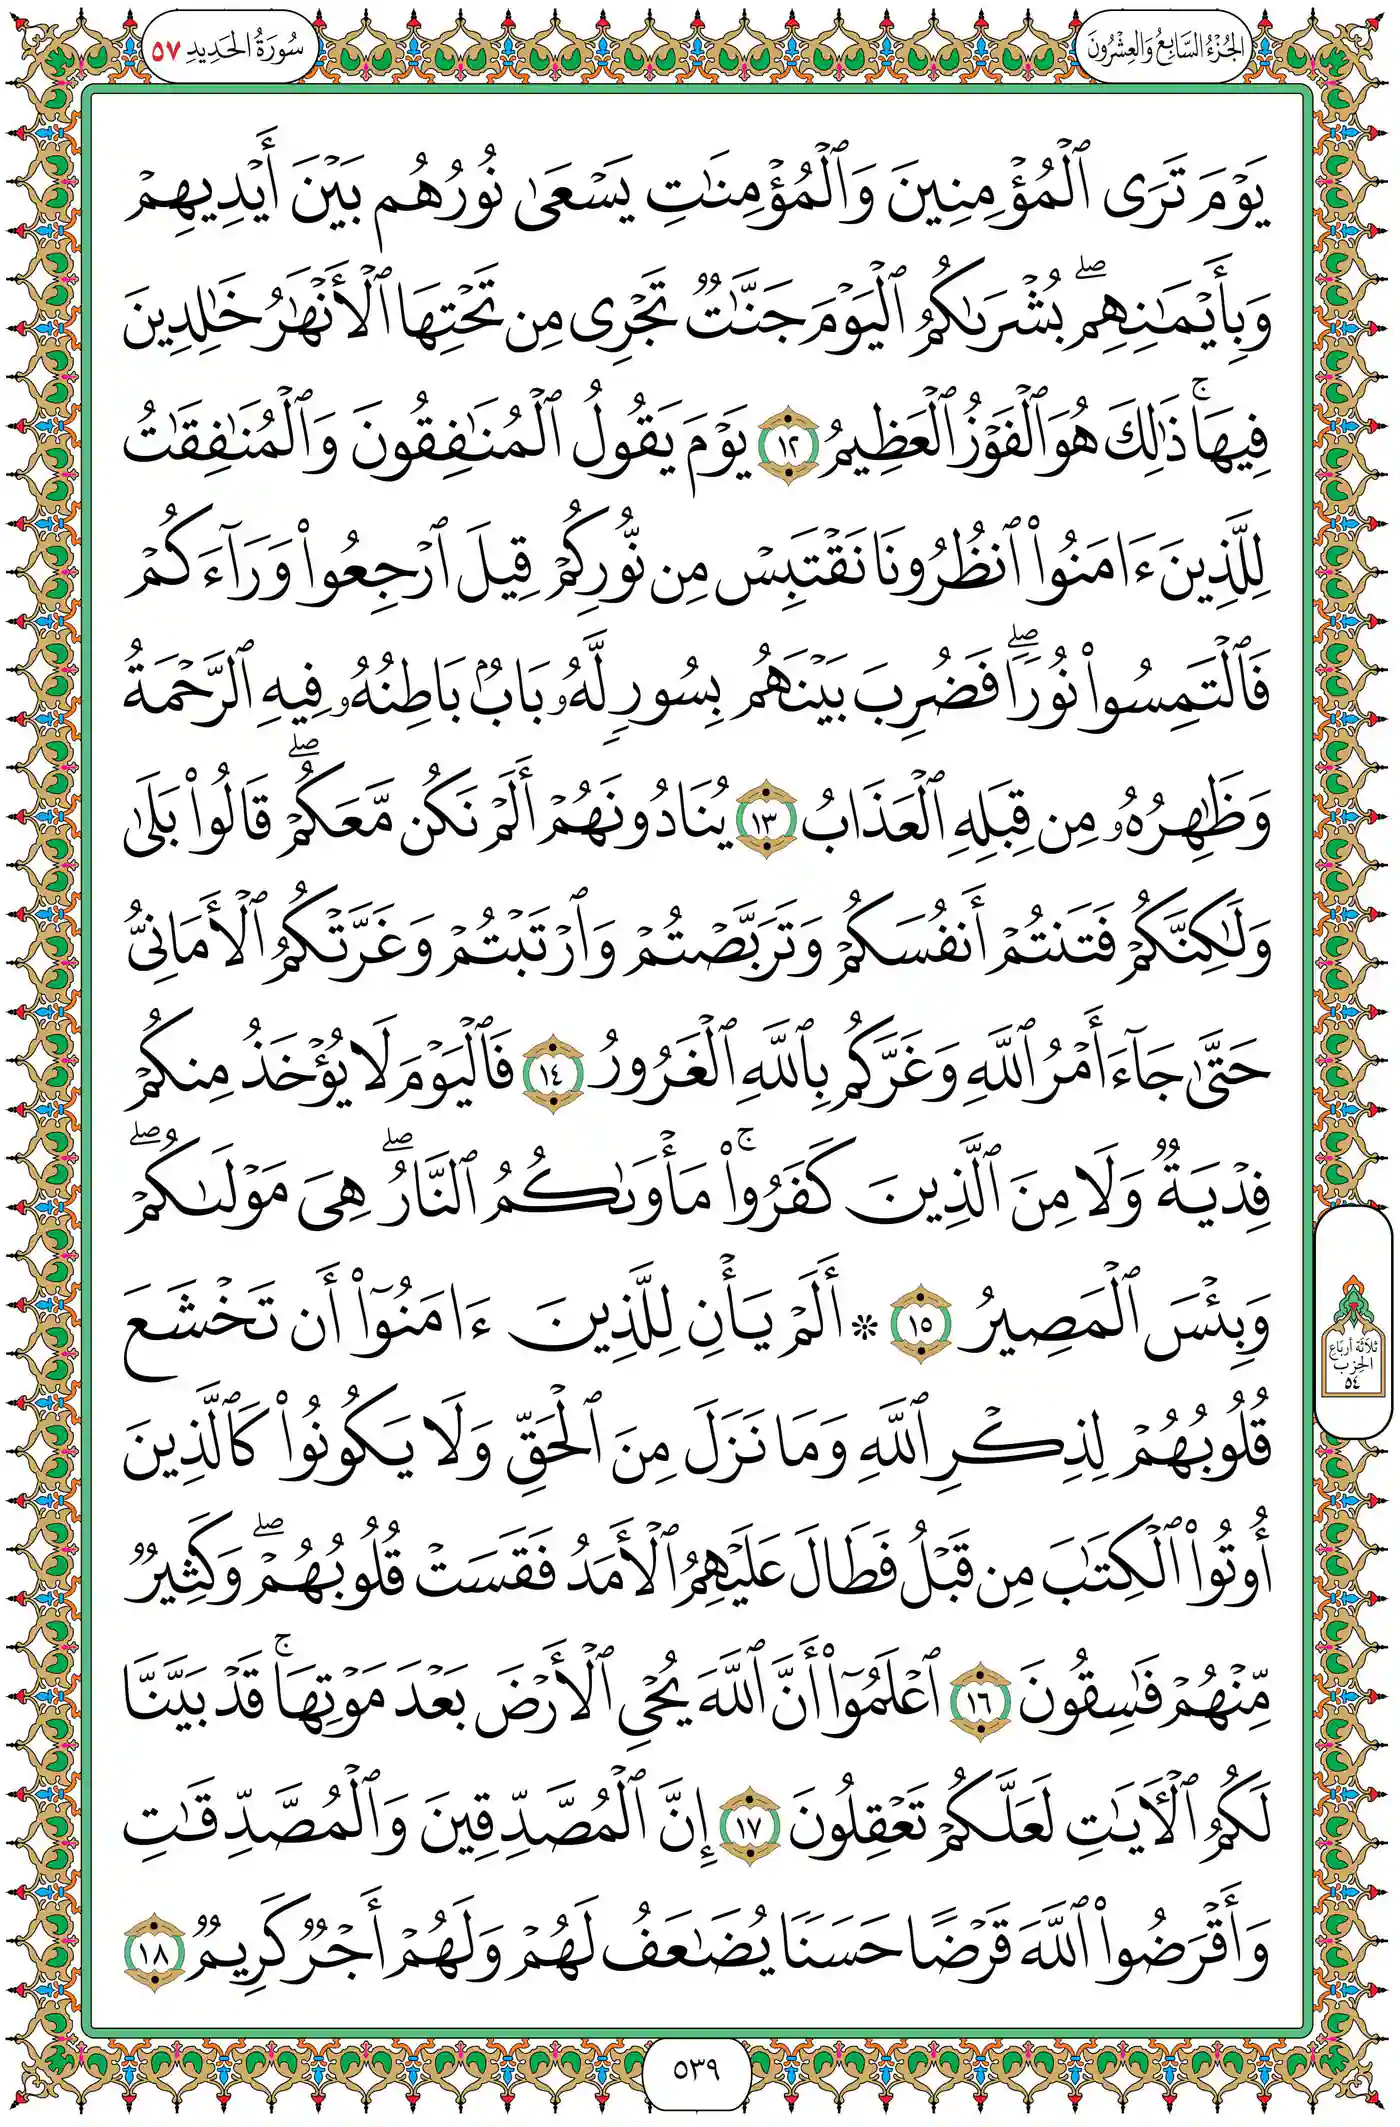 الجُزْءُ السَّابِعُ وَالعِشْرُونَ
سُورَةُ الحَدِيدِ ٥٧
يَوْمَ تَرَى ٱلْمُؤْمِنِينَ وَٱلْمُؤْمِنَٰتِ يَسْعَىٰ نُورُهُم بَيْنَ أَيْدِيهِمْ
وَبِأَيْمَٰنِهِمۖ بُشْرَىٰكُمُ ٱلْيَوْمَ جَنَّٰتٌ تَجْرِى مِن تَحْتِهَا ٱلْأَنْهَٰرُ خَٰلِدِينَ
فِيهَاۚ ذَٰلِكَ هُوَ ٱلْفَوْزُ ٱلْعَظِيمُ ١٢ يَوْمَ يَقُولُ ٱلْمُنَٰفِقُونَ وَٱلْمُنَٰفِقَٰتُ
لِلَّذِينَ ءَامَنُوا۟ ٱنظُرُونَا نَقْتَبِسْ مِن نُّورِكُمْ قِيلَ ٱرْجِعُوا۟ وَرَآءَكُمْ
فَٱلْتَمِسُوا۟ نُورًاۖ فَضُرِبَ بَيْنَهُم بِسُورٍ لَّهُۥ بَابٌۢ بَاطِنُهُۥ فِيهِ ٱلرَّحْمَةُ
وَظَٰهِرُهُۥ مِن قِبَلِهِ ٱلْعَذَابُ ١٣ يُنَادُونَهُمْ أَلَمْ نَكُن مَّعَكُمْۖ قَالُوا۟ بَلَىٰ
وَلَٰكِنَّكُمْ فَتَنتُمْ أَنفُسَكُمْ وَتَرَبَّصْتُمْ وَٱرْتَبْتُمْ وَغَرَّتْكُمُ ٱلْأَمَانِىُّ
حَتَّىٰ جَآءَ أَمْرُ ٱللَّهِ وَغَرَّكُم بِٱللَّهِ ٱلْغَرُورُ ١٤ فَٱلْيَوْمَ لَا يُؤْخَذُ مِنكُمْ
فِدْيَةٌ وَلَا مِنَ ٱلَّذِينَ كَفَرُوا۟ۚ مَأْوَىٰكُمُ ٱلنَّارُۖ هِىَ مَوْلَىٰكُمْۖ
وَبِئْسَ ٱلْمَصِيرُ ١٥ ۞ أَلَمْ يَأْنِ لِلَّذِينَ ءَامَنُوٓا۟ أَن تَخْشَعَ
قُلُوبُهُمْ لِذِكْرِ ٱللَّهِ وَمَا نَزَلَ مِنَ ٱلْحَقِّ وَلَا يَكُونُوا۟ كَٱلَّذِينَ
أُوتُوا۟ ٱلْكِتَٰبَ مِن قَبْلُ فَطَالَ عَلَيْهِمُ ٱلْأَمَدُ فَقَسَتْ قُلُوبُهُمْۖ وَكَثِيرٌ
مِّنْهُمْ فَٰسِقُونَ ١٦ ٱعْلَمُوٓا۟ أَنَّ ٱللَّهَ يُحْىِ ٱلْأَرْضَ بَعْدَ مَوْتِهَاۚ قَدْ بَيَّنَّا
لَكُمُ ٱلْءَايَٰتِ لَعَلَّكُمْ تَعْقِلُونَ ١٧ إِنَّ ٱلْمُصَّدِّقِينَ وَٱلْمُصَّدِّقَٰتِ
وَأَقْرَضُوا۟ ٱللَّهَ قَرْضًا حَسَنًا يُضَٰعَفُ لَهُمْ وَلَهُمْ أَجْرٌ كَرِيمٌ ١٨
ثَلَاثَةُ أَربَاعِ
الحِزْب
٥٤
٥٣٩